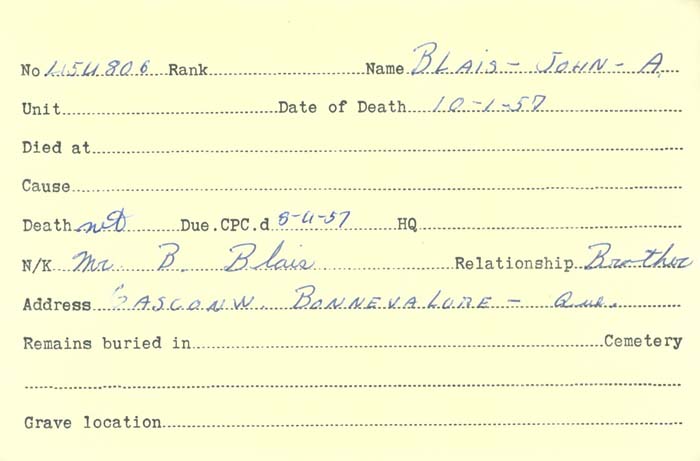 No 454806 Rank Name BLAIS - JOHN - A.
Unit Date of Death 10-1-57
Died at
Cause
Death not Due.CPC.d 8-4-57 HQ
N/K Mr. B. Blais Relationship Brother
Address GASCON W. BONNEVALURE - Que.
Remains buried in Cemetery
Grave location